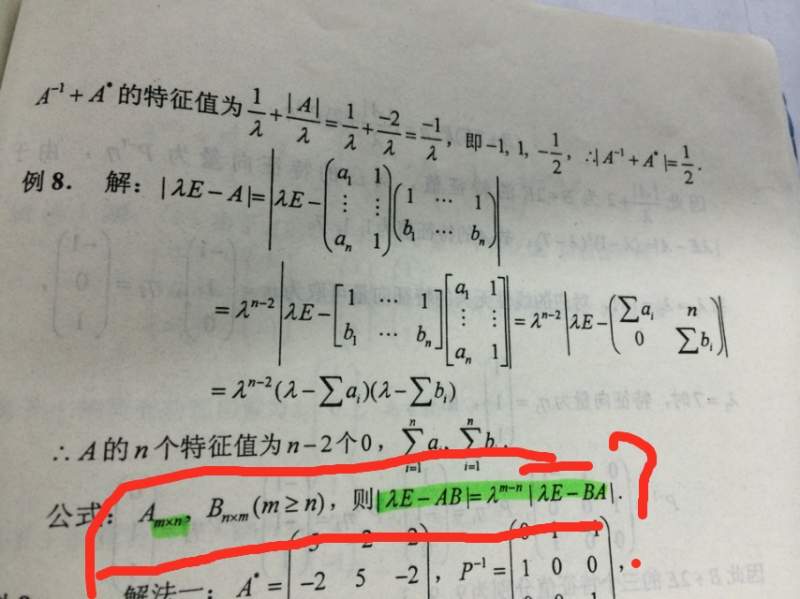 A⁻¹ + A* 的特征值为 1/λ + |A|/λ = 1/λ + -2/λ = -1/λ，即 -1, 1, -1/2，∴|A⁻¹ + A*| = 1/2.
例 8. 解：|λE - A| = |λE - (a₁ 1 ⋮ ⋮ aₙ 1)(1 ⋯ 1 b₁ ⋯ bₙ)|
= λⁿ⁻² |λE - [1 ⋯ 1 b₁ ⋯ bₙ][a₁ 1 ⋮ ⋮ aₙ 1]| = λⁿ⁻² |λE - (∑aᵢ n 0 ∑bᵢ)|
= λⁿ⁻²(λ - ∑aᵢ)(λ - ∑bᵢ)
∴ A 的 n 个特征值为 n - 2 个 0，∑ᵢ₌₁ⁿ aᵢ、∑ᵢ₌₁ⁿ bᵢ.
公式：Aₘ×ₙ，Bₙ×ₘ (m ≥ n)，则|λE - AB| = λᵐ⁻ⁿ |λE - BA|. ?
解法一：A* = -2 5 -2，P⁻¹ = 0 1 1 0 0，